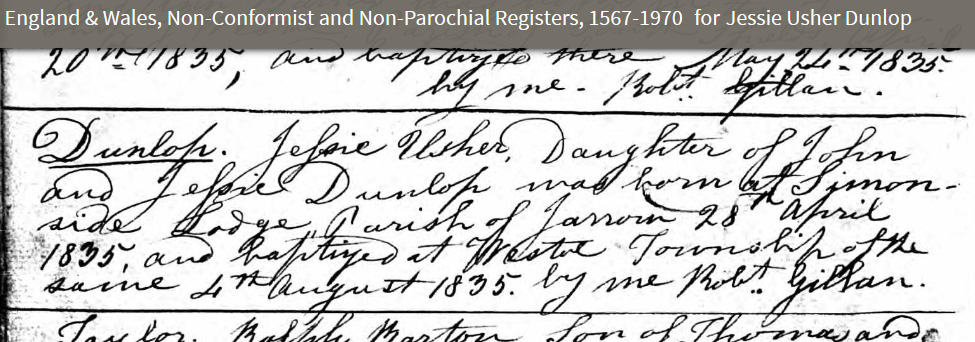 England & Wales, Non-Conformist and Non-Parochial Registers, 1567-1970 for Jessie Usher Dunlop
20th 1835, and baptized there May 24th 1835.
by me. Robt. Gillan.
Dunlop. Jessie Usher, Daughter of John
and Jessie Dunlop was born at Simon-
side Lodge, Parish of Jarrow 28th April
1835, and baptized at Westoe Township of the
same 4th August 1835. by me Robt. Gillan.
Taylor. Ralph Barton Son of Thomas and